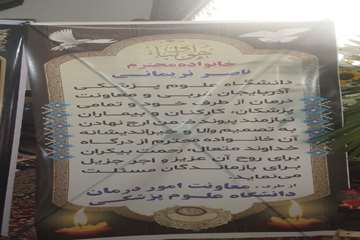 خانواده محترم
ناصر نریمانی
دانشگاه علوم پزشکی
آذربایجان غربی و معاونت
درمان از طرف خود و تمامی
پزشکان، کارکنان و بیماران
نیازمند پیوند ضمن ارج نهادن
به تصمیم والا و خیراندیشانه
آن خانواده محترم از درگاه
خداوند متعال رحمت بیکران
برای روح آن عزیز و اجر جزیل
برای بازماندگان مسئلت
می‌نماید.
از طرف: معاونت امور درمان
دانشگاه علوم پزشکی